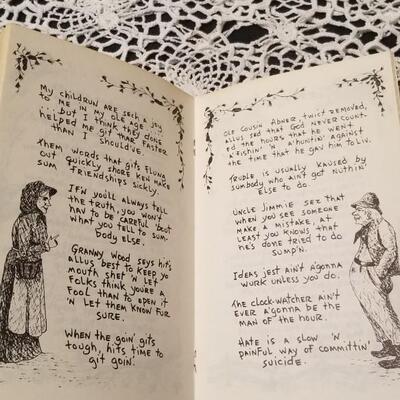 My childrun are sech a joy
to me in my old age
...but I think they done
helped me git thar faster
than I should've.
Them words that gits flung
out quickly shore ken make
sum friendships sickly
Ifn you'll always tell
the truth, you won't
hav to be careful 'bout
what you tell to sum-
body else.
Granny Wood seys hit's
allus best to keep yo
mouth shet 'n let
folks think you're a
fool than to open it
'n let them know fur
sure.
When the goin' gits
tough, hits time to
git goin'.
Ole cousin Abner, twict removed,
allus sed that God never count-
ed the hours that he went
a'fishin' 'n a'huntin' against
the time that he gav him to liv.
Truble is usually kaused by
sumbody who ain't got nuthin'
else to do.
Uncle Jimmie sez that
when you see someone
make a mistake, at
least you knows that
he's done tried to do
sump'n.
Ideas jest ain't a'gonna
work unless you do.
The clock-watcher ain't
ever a'gonna be the
man of the hour.
Hate is a slow 'n
painful way of committin'
suicide.